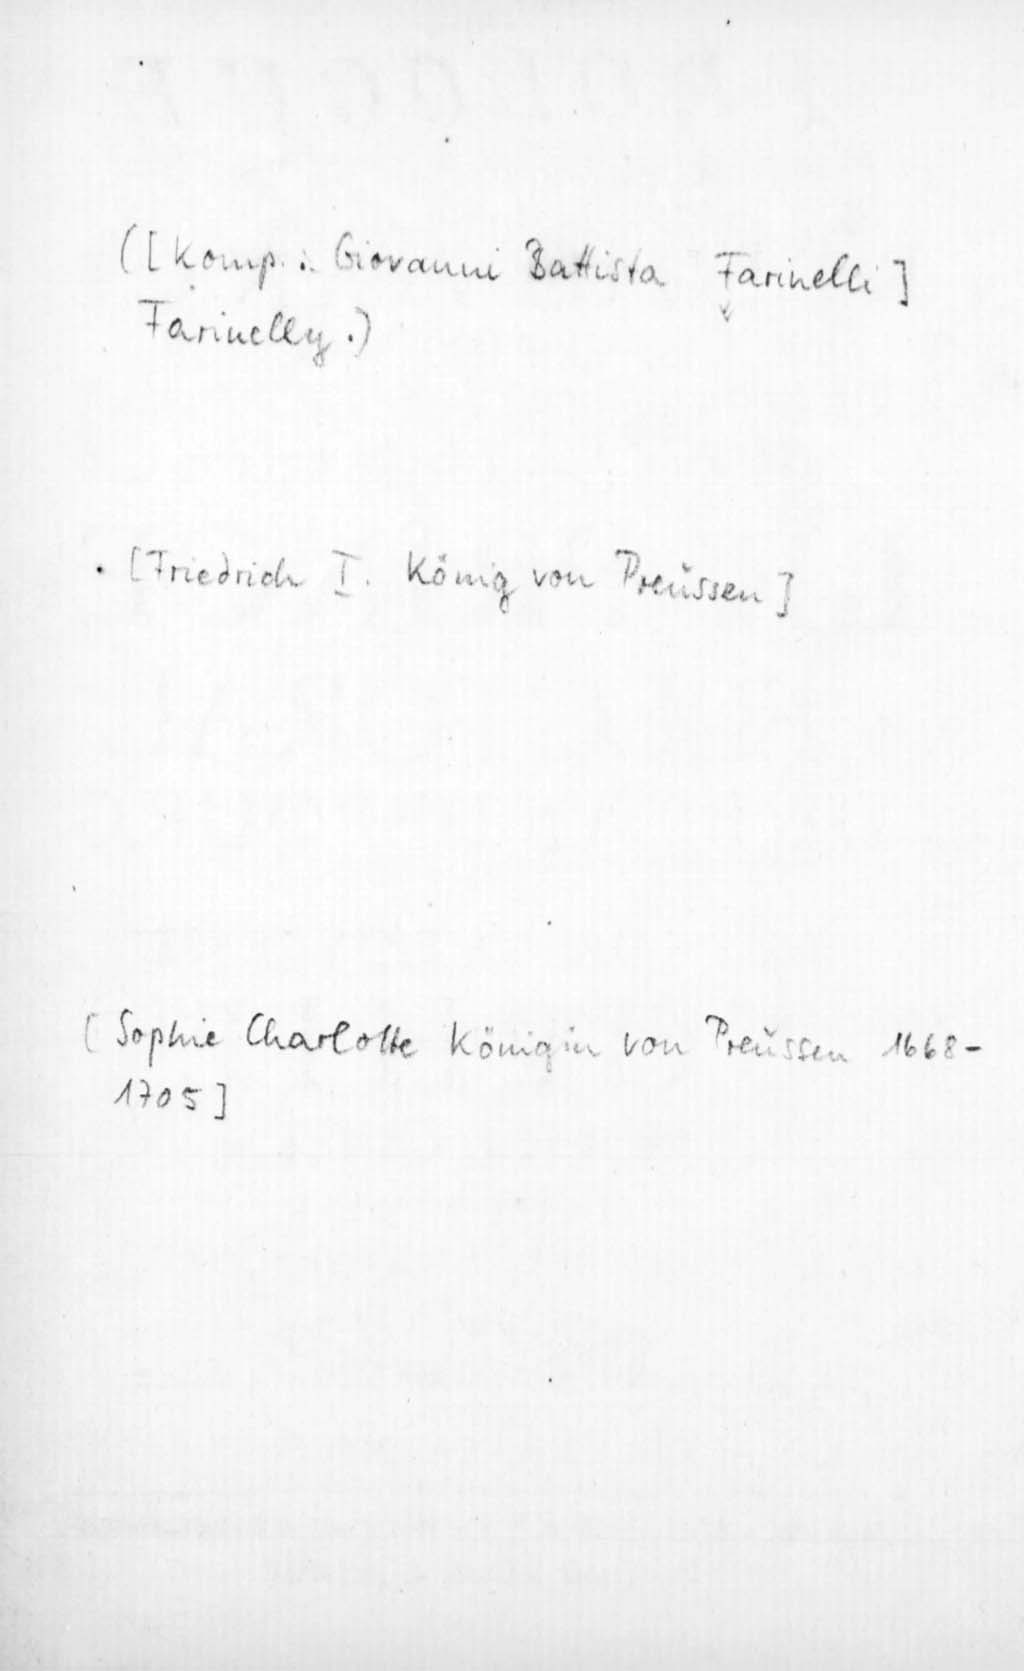 ([Komp.: Giovanni Battista Farinelli]
Farinelly.)
[Friedrich I. König von Preussen]
[Sophie Charlotte Königin von Preussen 1668-
1705]